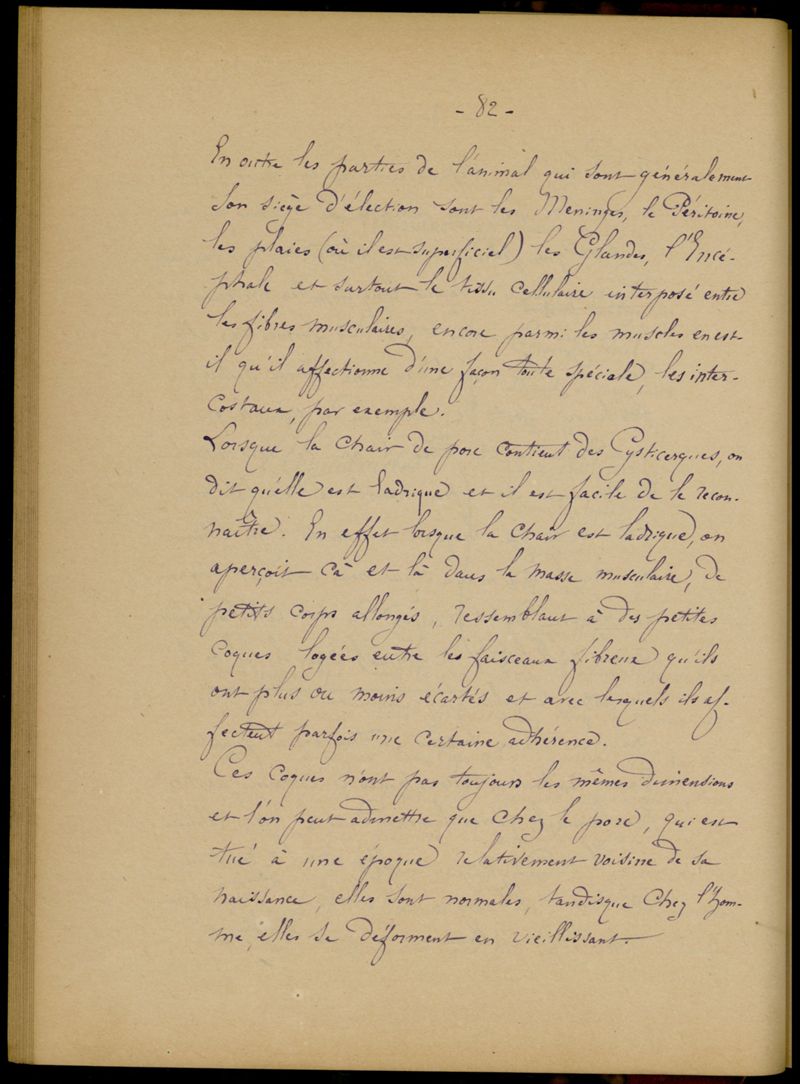 - 82 -
En outre les parties de l'animal qui sont généralement
son siège d'élection sont les Meninges, le Péritoine,
les plaies (où il est superficiel) les Glandes, l'Encé-
phale et surtout le tissu cellulaire interposé entre
les fibres musculaires, encore parmi les muscles en est-
il qu'il affectionne d'une façon toute spéciale, les inter-
costaux, par exemple.
Lorsque la chair de porc contient des Cysticerques, on
dit qu'elle est ladrique et il est facile de le recon-
naître. En effet lorsque la chair est ladrique, on
aperçoit çà et là dans la masse musculaire, de
petits corps allongés, ressemblant à des petites
coques logées entre les faisceaux fibreux qu'ils
ont plus ou moins écartés et avec lesquels ils af-
fectent parfois une certaine adhérence.
Ces coques n'ont pas toujours les mêmes dimensions
et l'on peut admettre que chez le porc, qui est
tué à une époque relativement voisine de sa
naissance, elles sont normales, tandisque chez l'hom-
me, elles se déforment en vieillissant.